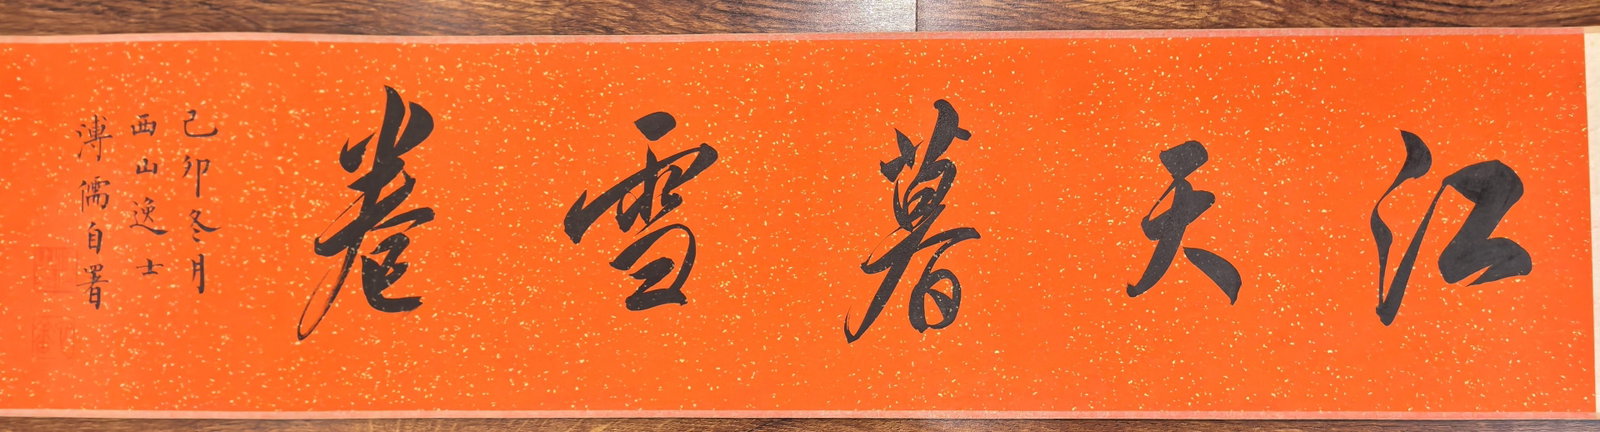 江天暮雪卷
己卯冬月
西山逸士
溥儒自署